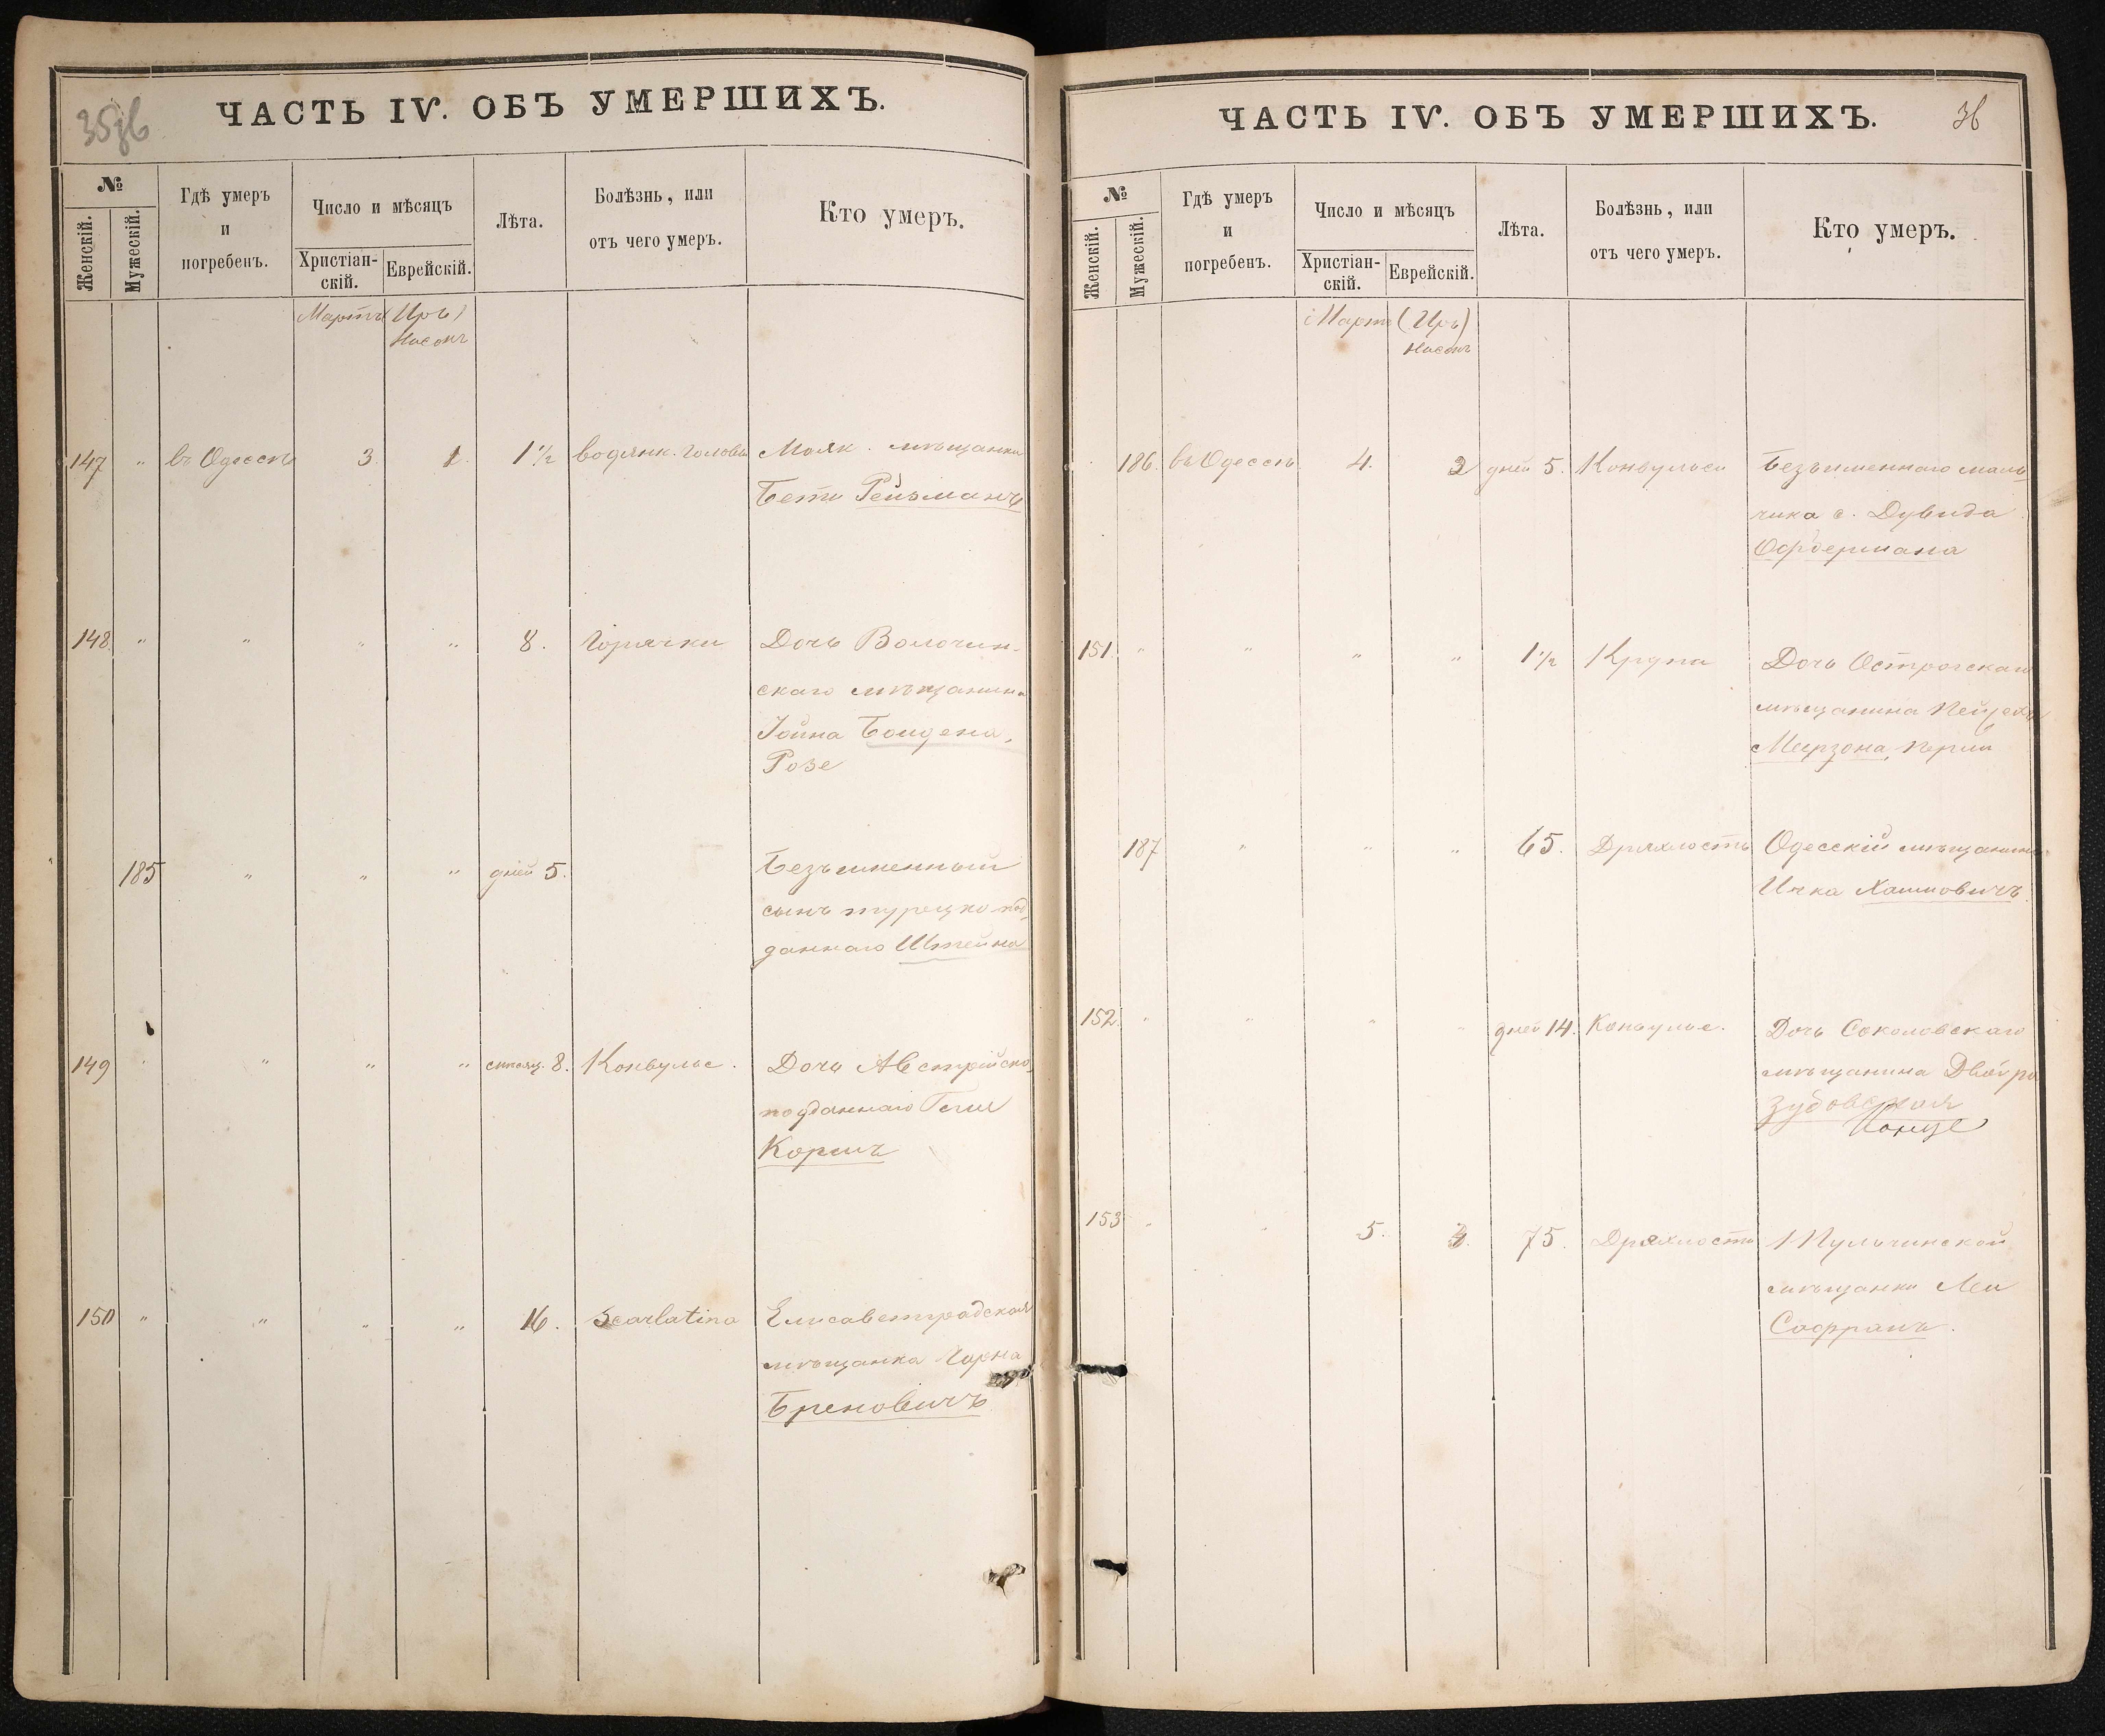 35зв
ЧАСТЬ IV. ОБЪ УМЕРШИХЪ.
№
Женскій.
Мужескій.
Гдѣ умеръ
и
погребенъ.
Число и мѣсяцъ
Христіан-
скій.
Еврейскій.
Лѣта.
Болѣзнь, или
отъ чего умеръ.
Кто умеръ.
Мартъ (Иръ)
Насонъ
147 " въ Одессѣ 3. 1. 1 ½ водянк. головы Маяк. мѣщанки
Бети Рейзманъ
148 " " " " 8. Горячки Дочь Волочин-
скаго мѣщанина
Іойна
Розе
185 " " " дней 5. Безъименный
сынъ турецко под-
даннаго Штейна
149 " " " " мѣсяц. 8. Конвульс. Дочь Австрійско
подданнаго
Корнъ
150 " " " " 16. Scarlatina Елисаветградская
мѣщанка
Бреновичъ
36
ЧАСТЬ IV. ОБЪ УМЕРШИХЪ.
№
Женскій.
Мужескій.
Гдѣ умеръ
и
погребенъ.
Число и мѣсяцъ
Христіан-
скій.
Еврейскій.
Лѣта.
Болѣзнь, или
отъ чего умеръ.
Кто умеръ.
Мартъ (Иръ)
Насонъ
186. въ Одессѣ 4. 2 дней 5. Конвульси Безъименнаго маль
чика с. Дувида
Офдермана
151. " " " " 1 ½ Крупа Дочь Острогскаго
мѣщанина
Меерзона, Перли
187 " " " 65. Дряхлость Одесскій мѣщанинъ
Ицка Хаимовичъ.
152. " " " " дней 14. Конвульс. Дочь Соколовскаго
мѣщанина Двойра
Зубовская
153 " " 5. 3. 75. Дряхлость Тульчинской
мѣщанки Леи
Сафранъ.